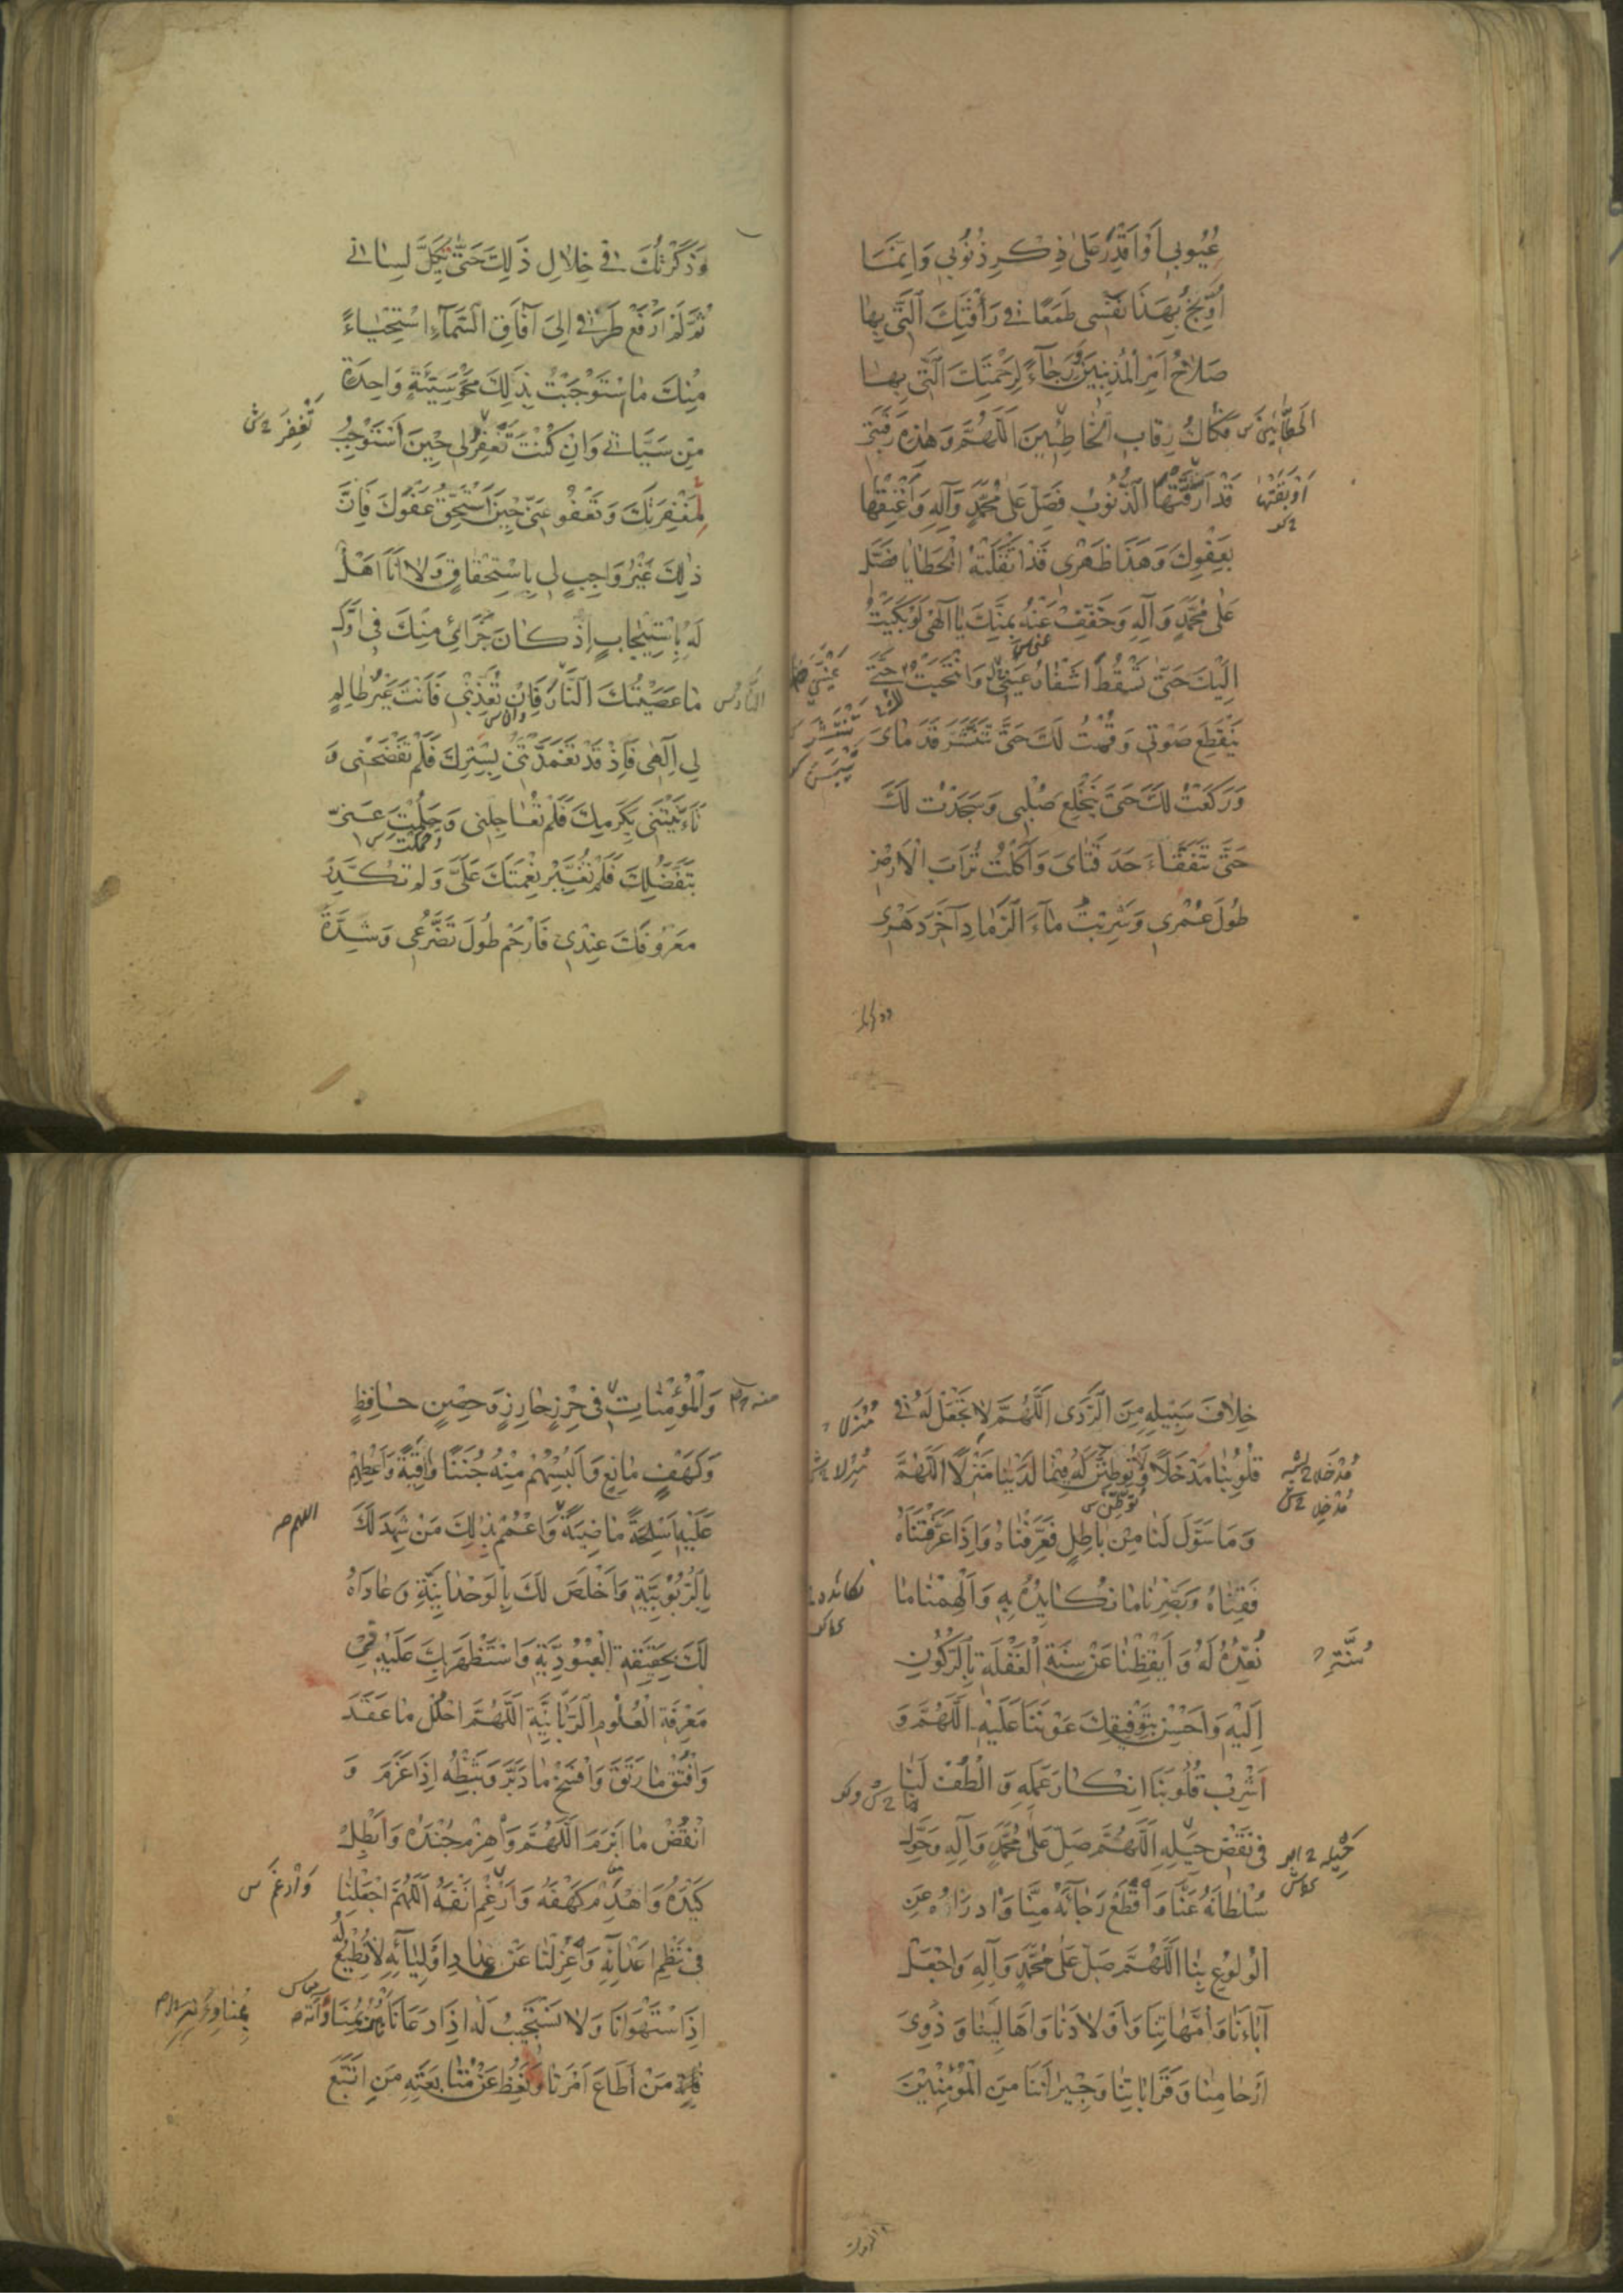 عُيُوبِي أَوْ أَقْدِرُ عَلَى ذِكْرِ ذُنُوبِي وَإِنَّمَا
أُوَبِّخُ بِهَذَا نَفْسِي طَمَعًا فِي رَأْفَتِكَ الَّتِي بِهَا
صَلَاحُ أَمْرِ الْمُذْنِبِينَ وَرَجَاءً لِرَحْمَتِكَ الَّتِي بِهَا
فَكَاكُ رِقَابِ الْخَاطِئِينَ اللَّهُمَّ وَهَذِهِ رَقَبَتِي
قَدْ أَرَقَّتْهَا الذُّنُوبُ فَصَلِّ عَلَى مُحَمَّدٍ وَآلِهِ وَأَعْتِقْهَا
أَوْبَقَتْهَا
بِعَفْوِكَ وَهَذَا ظَهْرِي قَدْ أَثْقَلَتْهُ الْخَطَايَا فَصَلِّ
عَلَى مُحَمَّدٍ وَآلِهِ وَخَفِّفْ عَنْهُ بِمَنِّكَ يَا إِلَهِي لَوْ بَكَيْتُ
إِلَيْكَ حَتَّى تَسْقُطَ أَشْفَارُ عَيْنَيَّ وَانْتَحَبْتُ حَتَّى
يَنْقَطِعَ صَوْتِي وَقُمْتُ لَكَ حَتَّى تَتَنَشَّرَ قَدَمَايَ
وَرَكَعْتُ لَكَ حَتَّى يَنْخَلِعَ صُلْبِي وَسَجَدْتُ لَكَ
حَتَّى تَتَفَقَّأَ حَدَقَتَايَ وَأَكَلْتُ تُرَابَ الْأَرْضِ
طُولَ عُمْرِي وَشَرِبْتُ مَاءَ الرَّمَادِ آخِرَ دَهْرِي
وذكرتك
وَذَكَرْتُكَ فِي خِلَالِ ذَلِكَ حَتَّى يَكِلَّ لِسَانِي
ثُمَّ لَمْ أَرْفَعْ طَرْفِي إِلَى آفَاقِ السَّمَاءِ اسْتِحْيَاءً
مِنْكَ مَا اسْتَوْجَبْتُ بِذَلِكَ مَحْوَ سَيِّئَةٍ وَاحِدَةٍ
مِنْ سَيِّئَاتِي وَإِنْ كُنْتَ تَغْفِرُ لِي حِينَ أَسْتَوْجِبُ
تَغْفِرَ
مَغْفِرَتَكَ وَتَعْفُو عَنِّي حِينَ أَسْتَحِقُّ عَفْوَكَ فَإِنَّ
ذَلِكَ غَيْرُ وَاجِبٍ لِي بِاسْتِحْقَاقٍ وَلَا أَنَا أَهْلٌ
لَهُ بِاسْتِيجَابٍ إِذْ كَانَ جَزَائِي مِنْكَ فِي أَوَّلِ
مَا عَصَيْتُكَ النَّارُ فَإِنْ تُعَذِّبْنِي فَأَنْتَ غَيْرُ ظَالِمٍ
لِي إِلَهِي فَإِذْ قَدْ تَغَمَّدْتَنِي بِسِتْرِكَ فَلَمْ تَفْضَحْنِي وَ
تَأَنَّيْتَنِي بِكَرَمِكَ فَلَمْ تُعَاجِلْنِي وَحَلُمْتَ عَنِّي
بِتَفَضُّلِكَ فَلَمْ تُغَيِّرْ نِعْمَتَكَ عَلَيَّ وَلَمْ تُكَدِّرْ
مَعْرُوفَكَ عِنْدِي فَارْحَمْ طُولَ تَضَرُّعِي وَشِدَّةَ
خِلَافَ سَبِيلِهِ مِنَ الرَّدَى اللَّهُمَّ لَا تَجْعَلْ لَهُ فِي
قُلُوبِنَا مَدْخَلًا وَلَا تُوطِنَنَّ لَهُ فِيمَا لَدَيْنَا مَنْزِلًا اللَّهُمَّ
وَمَا سَوَّلَ لَنَا مِنْ بَاطِلٍ فَعَرِّفْنَاهُ وَإِذَا عَرَّفْتَنَاهُ
فَقِنَاهُ وَبَصِّرْنَا مَا نُكَايِدُهُ بِهِ وَأَلْهِمْنَا مَا
نُعِدُّهُ لَهُ وَأَيْقِظْنَا عَنْ سِنَةِ الْغَفْلَةِ بِالرُّكُونِ
إِلَيْهِ وَأَحْسِنْ بِتَوْفِيقِكَ عَوْنَنَا عَلَيْهِ اللَّهُمَّ وَ
أَشْرِبْ قُلُوبَنَا إِنْكَارَ عَمَلِهِ وَالْطُفْ لَنَا
فِي نَقْضِ حِيَلِهِ اللَّهُمَّ صَلِّ عَلَى مُحَمَّدٍ وَآلِهِ وَحَوِّلْ
سُلْطَانَهُ عَنَّا وَاقْطَعْ رَجَاءَهُ مِنَّا وَادْرَأْهُ عَنِ
الْوُلُوعِ بِنَا اللَّهُمَّ صَلِّ عَلَى مُحَمَّدٍ وَآلِهِ وَاجْعَلْ
آبَاءَنَا وَأُمَّهَاتِنَا وَأَوْلَادَنَا وَأَهَالِيَنَا وَذَوِي
أَرْحَامِنَا وَقَرَابَاتِنَا وَجِيرَانَنَا مِنَ الْمُؤْمِنِينَ
وَالْمُؤْمِنَاتِ فِي حِرْزٍ حَارِزٍ وَحِصْنٍ حَافِظٍ
وَكَهْفٍ مَانِعٍ وَأَلْبِسْهُمْ مِنْهُ جُنَنًا وَاقِيَةً وَأَعْطِهِمْ
عَلَيْهِ أَسْلِحَةً مَاضِيَةً وَاعْمُمْ بِذَلِكَ مَنْ شَهِدَ لَكَ
اللهم
بِالرُّبُوبِيَّةِ وَأَخْلَصَ لَكَ بِالْوَحْدَانِيَّةِ وَعَادَاهُ
لَكَ بِحَقِيقَةِ الْعُبُودِيَّةِ وَاسْتَظْهَرَ بِكَ عَلَيْهِ فِي
مَعْرِفَةِ الْعُلُومِ الرَّبَّانِيَّةِ اللَّهُمَّ احْلُلْ مَا عَقَدَ
وَافْتُقْ مَا رَتَقَ وَافْسَخْ مَا دَبَّرَ وَثَبِّطْهُ إِذَا عَزَمَ وَ
انْقُضْ مَا أَبْرَمَ اللَّهُمَّ وَاهْزِمْ جُنْدَهُ وَأَبْطِلْ
كَيْدَهُ وَاهْدِمْ كَهْفَهُ وَأَرْغِمْ أَنْفَهُ اللَّهُمَّ اجْعَلْنَا
فِي نَظْمِ أَعْدَائِهِ وَاعْزِلْنَا عَنْ عِدَادِ أَوْلِيَائِهِ لَا نُطِيعُ لَهُ
إِذَا اسْتَهْوَانَا وَلَا نَسْتَجِيبُ لَهُ إِذَا دَعَانَا
مَنْ أَطَاعَ أَمْرَنَا وَنَعِظُ عَنْ مُتَابَعَتِهِ مَنِ اتَّبَعَ